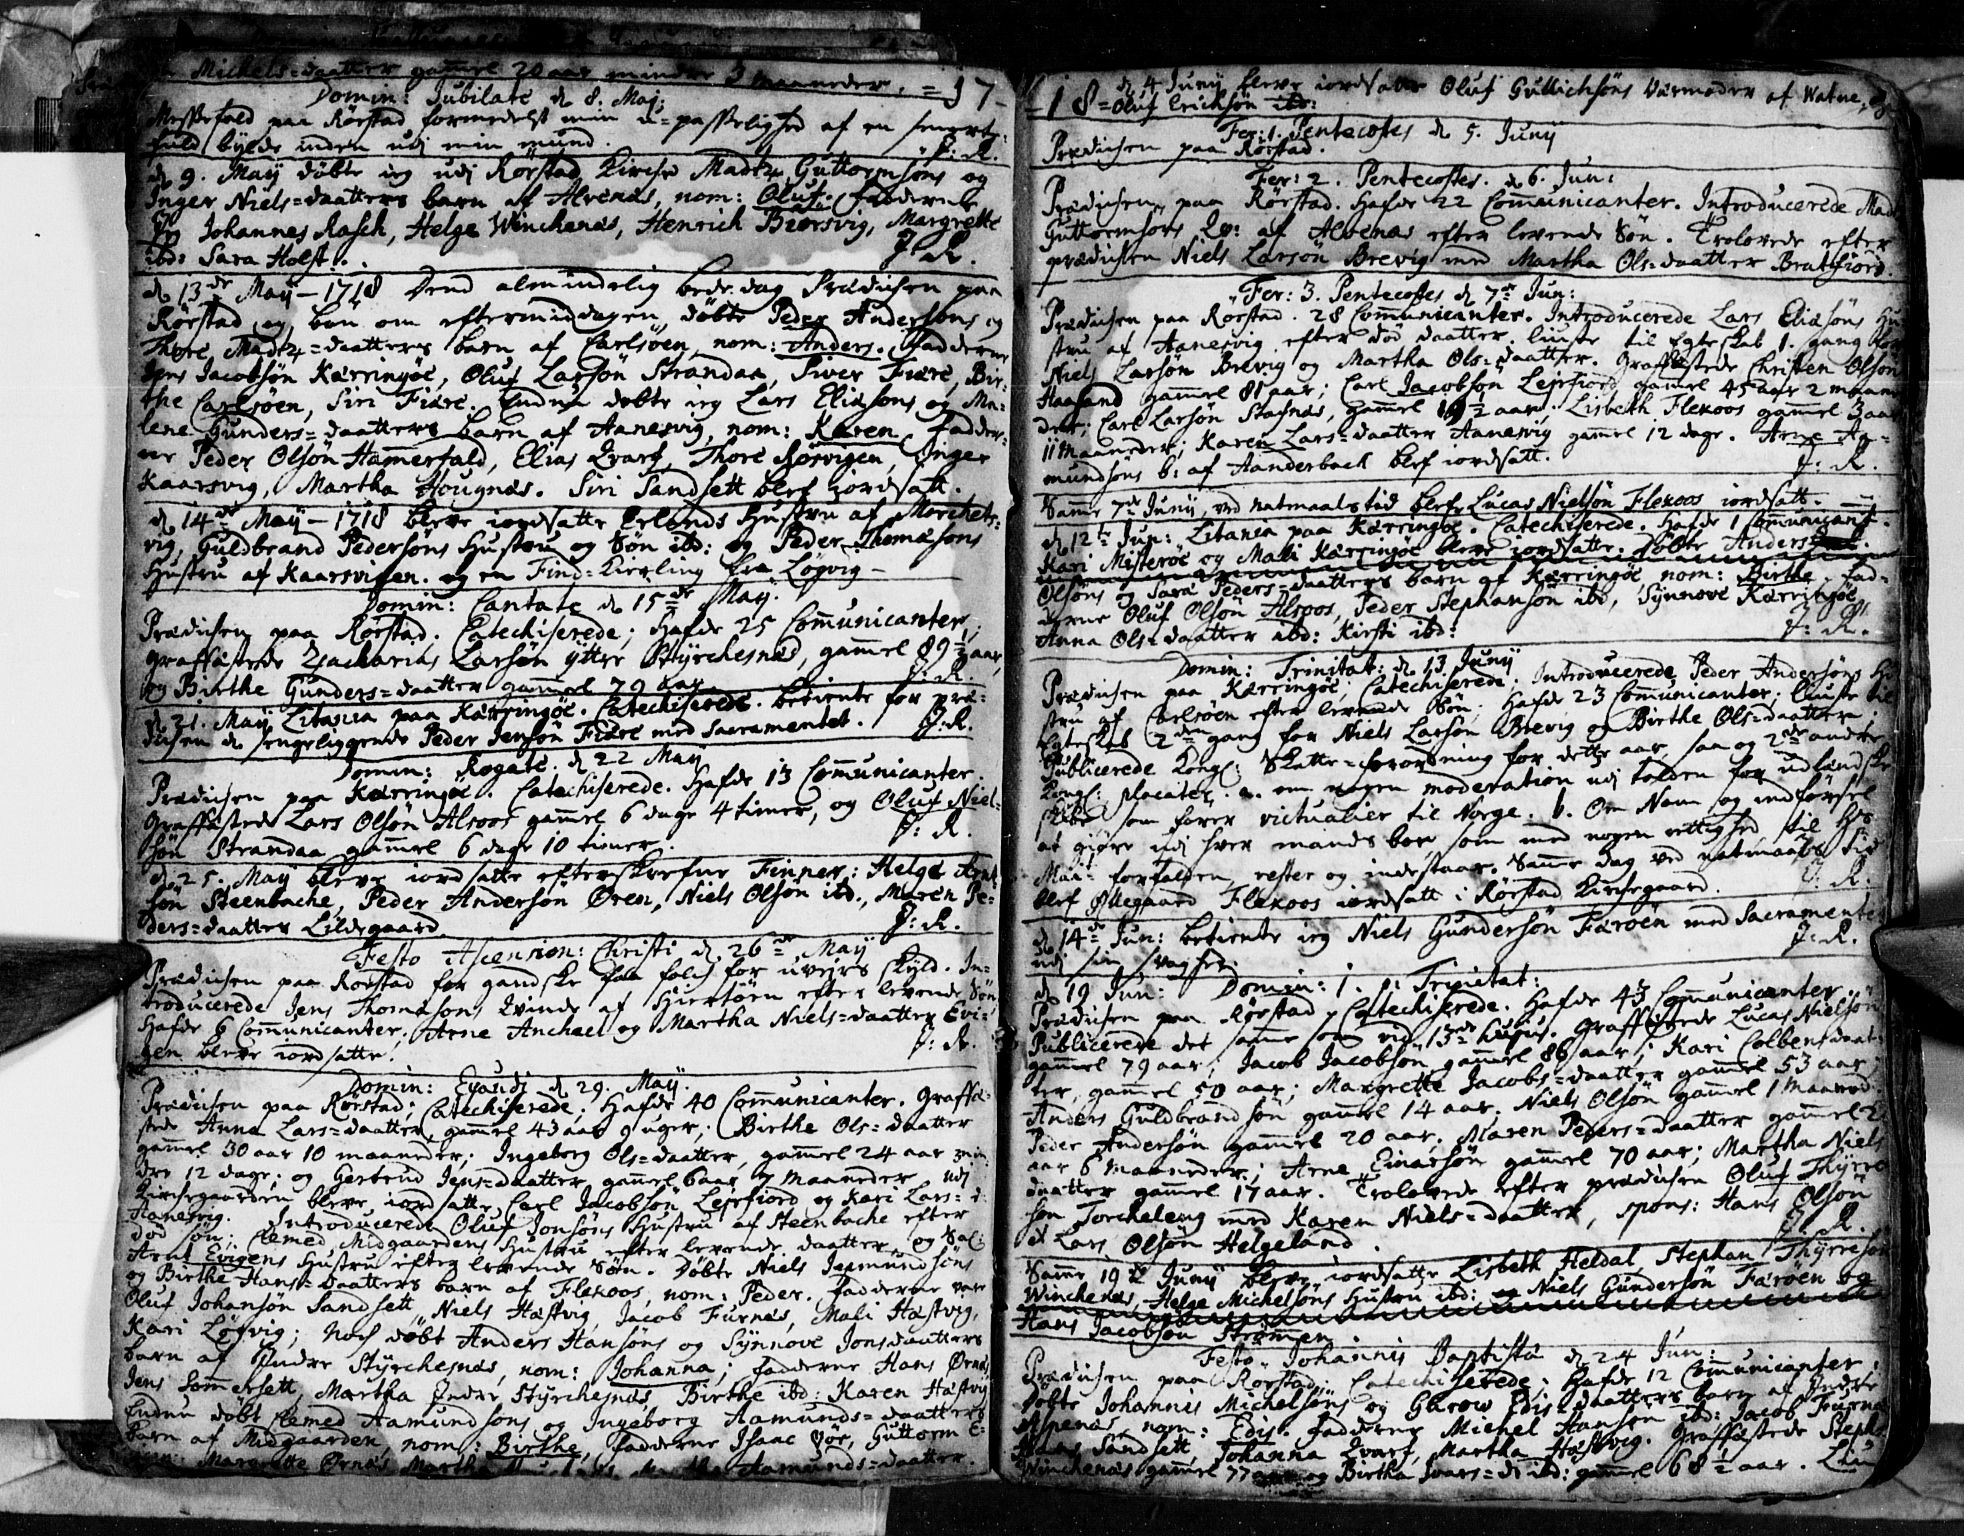 Michels=daatter gam̄el 20 aar mindre 3 maaneder. =17-
Domin: Jubilate d 8. Maj:
Messefald paa Rörstad formedelst min u=passelighed af en
fuld bylde inden udi min mund. J: R.
d 9. Maÿ döbte ieg udj Rörstad Kirche Madtz Guttormsöns og
Inger Niels=daatters barn af Alvenæs, nom: Oluf. Fadderne
Johannes Rasch, Helge Winchenæs, Henrich Brörsvig, Margrette
ibd: Sara Holst. J: R.
d 13de Maÿ - 1718 Dend almindelig bede-dag Prædichen paa
Rörstad og bön om eftermiddagen, döbte Peder Andersöns og
Thore Madtz=daatters barn af Carlsöen, nom: Anders. Fadderne
Jens Jacobsön Kærringöe, Oluf Larsön Strandaa, Siver Fiære, Bir-
the Carlsöen, Siri Fiære. Endnu döbte ieg Lars Eliæsöns og Ma-
lene Gunders=daatters barn af Aanesvig, nom: Karen, Fadder-
ne Peder Olsön Ham̄erfald, Elias Qvarf, Thore Rörvigen, Inger
Kaarsvig, Martha Hougnæs. Siri Sandsett blef iordsatt.
d 14de Maÿ - 1718 bleve iordsatte Erlends Hustru af Morchets-
vig, Guldbrand Pedersöns Hustru og Sön ibd: og Peder Thomæsöns
Hustru af Kaarsvigen. og en Find=Kierling fra Løgvig -
Domin: Cantate d 15de Maÿ.
Prædichen paa Rörstad. Catechiserede; Hafde 25 Com̄unicanter;
Graffæstede Zacharias Larsön ÿtter Stÿrchesnæs, gam̄el 89½ aar,
og Birthe Gunders=daatter gam̄el 79 aar. J: R.
d 21. Maÿ Litania paa Kærringöe. Catechiserede. betiente for præ-
dichen de sengeliggende Peder Jensön Fiære med Sacramentet. J: R.
Domin: Rogate. d 22 Maÿ
Prædichen paa Kærringöe. Catechiserede. Hafde 13 Com̄unicanter.
Graffæstede Lars Olsön Alsoos gam̄el 6 dage 4 timer, og Oluf Niel-
sön Strandaa gam̄el 6 dage 10 timer. J: R.
d 25. Maÿ bleve iordsatte efterskrefne Finner: Helge Arnt
sön Steenbache, Peder Andersön Øren, Niels Olsön ibd., Maren Pe-
ders=daatter Lildegaard. J: R.
Festo Ascension: Christi d. 26de Maÿ
Prædichen paa Rörstad for gandske faa folch for uvejrs skÿld. In-
troducerede Jens Thomæsöns Qvinde af Hiertöen efter levende Sön
Hafde 6 Com̄unicanter; Arne Anchael og Martha Niels=daatter Evi-
gen bleve iordsatte. J: R.
Domin: Exaudj d 29. Maÿ.
Prædichen paa Rörstad; Catechiserede: Hafde 40 Com̄unicanter. Graffæ-
stede Anna Lars=daatter, gam̄el 43 aar 9 uger; Birthe Ols=daatter
gam̄el 30 aar 10 maaneder; Ingeborg Ols=daatter, gam̄el 24 aar min
dre 12 dage; og Gertrud Jens=daatter gam̄el 6 aar 7 maaneder udj
Kirchegaarden bleve iordsatte Carl Jacobsön Lejrfiord og Kari Lars=d:
Aanesvig. Introducerede Oluf Jonsöns Hustru af Steenbache efter
död sön; Clemed Midgaardens Hustru efter levende daatter, og Sal:
Arnt Evigens Hustru efter levende Sön. Döbte Niels Jermundsöns
og Birthe Hans=daatters barn af Flexoos, nom: Peder. Fadderne vare
Oluf Johansön Sandsett, Niels Hæstvig, Jacob Furnæs, Mali Hæstvig,
Kari Løgvig; Noch döbt Anders Hansöns og Sÿnnove Jonsdaatters
barn af Indre Stÿrchesnæs, nom: Johanna; fadderne Hans Ørnæs
Jens Som̄ersett, Martha Indre Stÿrchesnæs Birthe ibd: Karen Hæstvig
Endnu döbt Clemed Aamundsöns og Ingeborg Aamunds=daatters
barn af Midgaarden, nom: Birthe, fadderne Isaac Vöe, Guttorm
Margrette Ørnæs Martha Aamunds=daatter.
-18= d 4 Junÿ bleve iordsatte Oluf Gullichsöns Værmoder af Watne,
Oluf Erichsön ibd:
Fer: 1. Pentecostes d 5. Junÿ
Prædichen paa Rörstad.
Fer: 2. Pentecostes. d 6. Jun:
Prædichen paa Rörstad. Hafde 22 Com̄unicanter. Introducerede Madtz
Guttormsöns Qv: af Alvenæs efter levende Sön. Trolovede efter
prædichen Niels Larsön Brevig med Martha Ols=daatter Bratfiord.
Fer: 3. Pentecostes d 7de Jun:
Prædichen paa Rörstad. 28 Com̄unicanter. Introducerede Lars Eliæsöns Hu-
stru af Aanesvig efter död daatter. liuste til Egteskab 1. gang for
Niels Larsön Brevig og Martha Ols=daatter. Graffæstede Christen Olsön
Haasand gam̄el 81 aar; Carl Jacobsön Lejrfiord gam̄el 45 aar 2 maane
der; Carl Larsön Stafnæs, gam̄el 19½ aar; Lisbeth Flexoos gam̄el 3 aar
11 maaneder; Karen Lars=daatter Aanesvig gam̄el 12 dage. Arne Aa-
mundsöns b: af Aanderback blef iordsatt. J: R.
Sam̄e 7de Junÿ, ved natmaals tid blef Lucas Nielsön Flexoos iordsatt.
d 12te Jun: Litania paa Kærringöe. Catechiserede. Hafde 1 Com̄unicant.
Kari Misteröe og Mali Kærringöe bleve iordsatte. Döbte Anders
Olsöns og Sara Peders=daatters barn af Kærringöe nom: Birthe. Fad-
derne Oluf Olsön Alsoos, Peder Stephansön ibd, Sÿnnove Kærringöe
Anna Ols=daatter ibd: Kirsti ibd: J: R.
Domin: Trinitat: d 13 Junÿ
Prædichen paa Kærringöe, Catechiserede. Introducerede Peder Andersöns Hu
stru af Carlsöen efter levende Sön. Hafde 23 Com̄unicanter; liuste til
Egteskab 2den gang for Niels Larsön Brevig og Birthe Ols=daatter.
Publicerede Kongl: Skatte=forordning for dette aar, saa og 2de andre
Kongl: placater. a. om nogen moderation udj tolden for udlændske
skibe som förer victualier til Norge. b. Om Navn og indförsel
at gjöre udj hver mands boe, som med nogen rettighed til Hs:
Maj:t forfalden rester og indestaar. Sam̄e dag ved natmaals tid
blef Øllegaard Flexoos iordsatt i Rörstad Kirchegaard. J: R.
d 14de Jun: betiente ieg Niels Gundersön Færöen med Sacramentet
udj sin svaghed. J: R.
d 19 Jun: Domin: 1. p: Trinitat:
Prædichen paa Rörstad, Catechiserede. Hafde 43 Com̄unicanter
Publicerede det sam̄e som vid: 13de hujus. Graffæstede Lucas Nielsön
gam̄el 79 aar; Jacob Jacobsön gam̄el 86 aar; Kari Colbensdaat-
ter, gam̄el 50 aar; Margrette Jacobs=daatter gam̄el 53 aar;
Anders Guldbrandsön gam̄el 14 aar. Niels Olsön gam̄el 1 maaned.
Peder Andersön gam̄el 20 aar. Maren Peders=daatter gam̄el 2
aar 6 maaneder; Arne Einarsön gam̄el 70 aar; Martha Niels
daatter gam̄el 17 aar. Trolovede efter prædichen Oluf Thÿrre
sön Torcheleng med Karen Niels=daatter, spons: Hans Olsön
et Lars Olsön Helgeland. J: R.
Sam̄e 19de Junÿ bleve iordsatte Lisbeth Heldal, Stephan Thÿrresön
Winchenæs, Helge Michelsöns Hustru ibd: og Niels Gundersön Færöen og
Hans Jacobsön Strömen.
Festo Johannis Baptistæ d 24 Jun:
Prædichen paa Rörstad; Catechiserede. Hafde 12 Com̄unicanter.
Döbte Johannis Michelsöns og Gurow Edis=daatters barn af Indre
Aspenæs, nom: Edis. Fadderne Michel Hansön ibd: Jacob Furnæs
Hans Sandsett, Johanna Qvarf, Martha Hæstvig. Graffæstede Steph:
Winchenæs gam̄el 77 aar og Birtha Ivars=d: ibd: gam̄el 68½ aar.